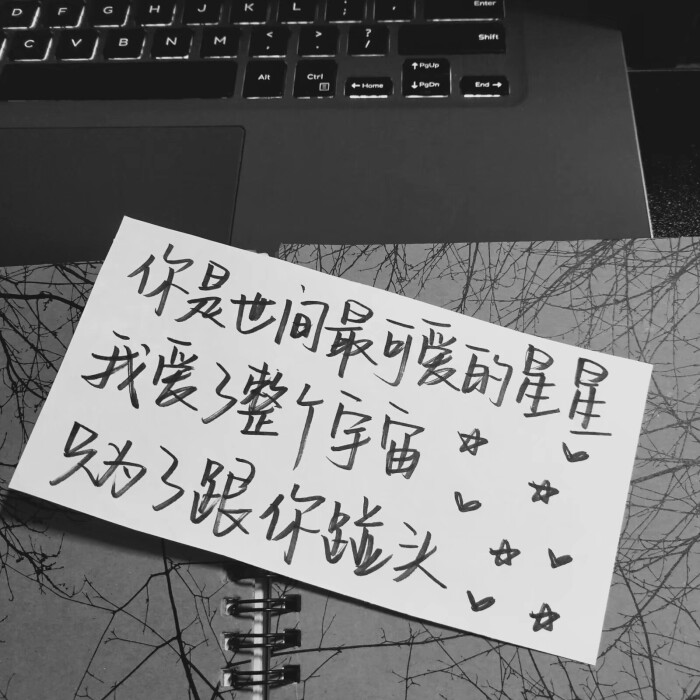 D F G H J K L ; ' Enter
C V B N M < , > . ? / Shift
Alt Ctrl ←Home ↑PgUp ↓PgDn End→
你是世间最可爱的星星
我爱了整个宇宙
只为了跟你踫头